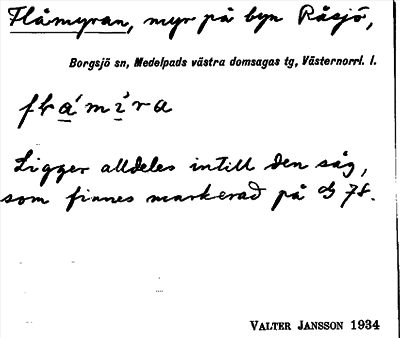 Flåmyran, myr på byn Råsjö,
Borgsjö sn, Medelpads västra domsagas tg, Västernorrl. l.
Ligger alldeles intill den såg,
som finnes markerad på 78.
VALTER JANSSON 1934